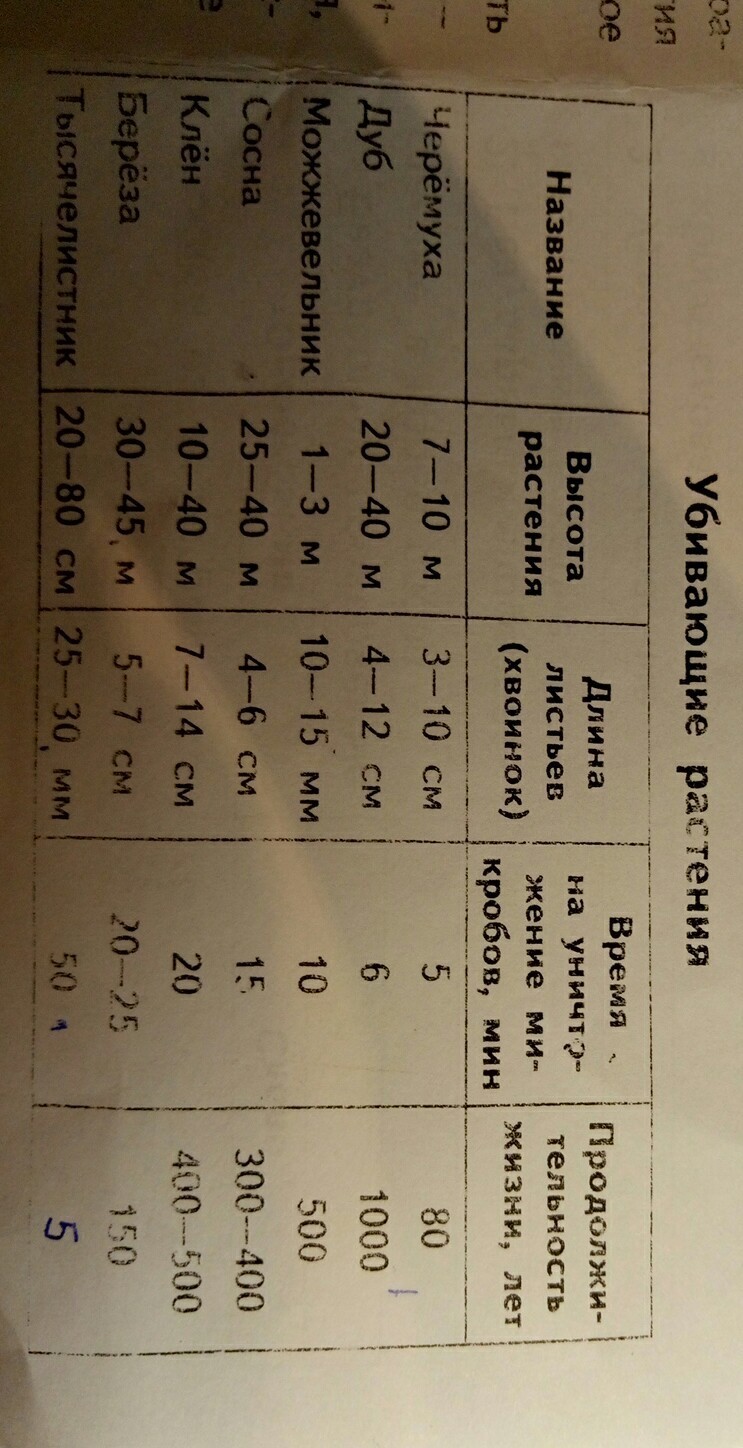 Убивающие растения
Название | Высота растения | Длина листьев (хвоинок) | Время на уничто- жение ми- кробов, мин | Продолжи- тельность жизни, лет
Черёмуха | 7—10 м | 3—10 см | 5 | 80
Дуб | 20—40 м | 4—12 см | 6 | 1000
Можжевельник | 1—3 м | 10—15 мм | 10 | 500
Сосна | 25—40 м | 4—6 см | 15 | 300—400
Клён | 10—40 м | 7—14 см | 20 | 400—500
Берёза | 30—45 м | 5—7 см | 20—25 | 150
Тысячелистник | 20—80 см | 25—30 мм | 50 | 5